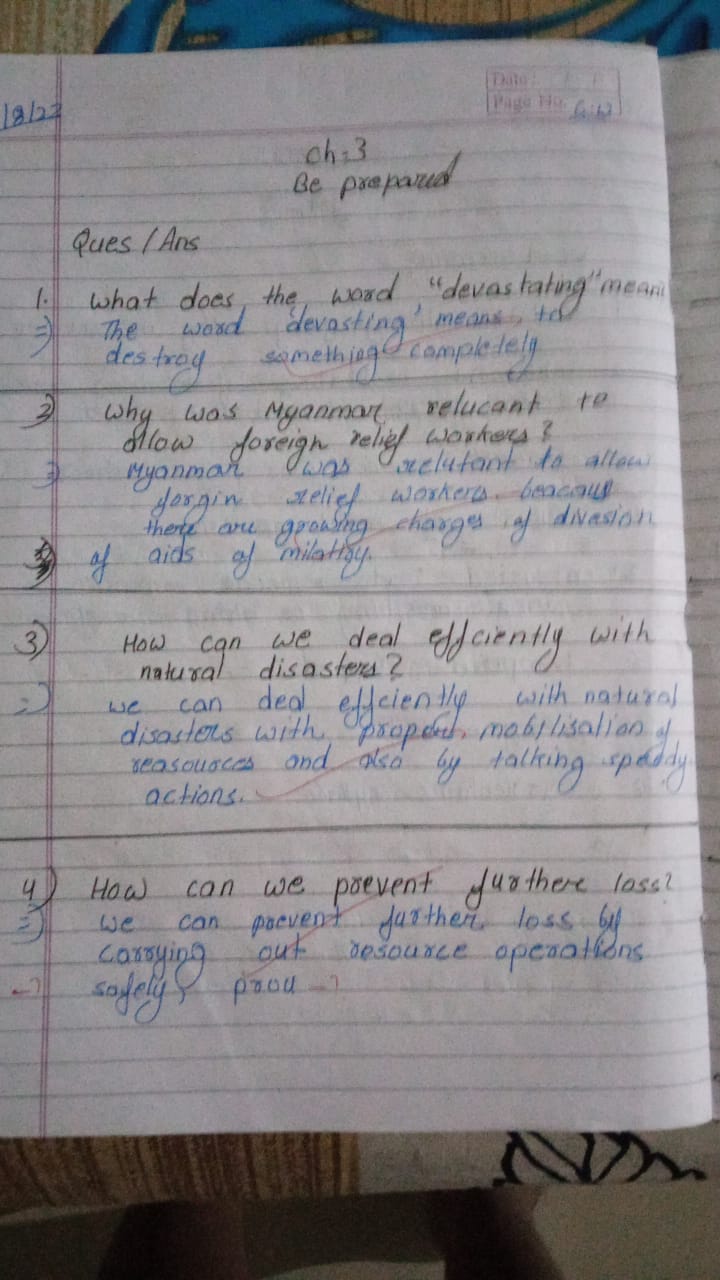 /8/22
Date:
Page No. G.W
Ch:3
Be prepared
Ques/Ans
1. What does the word "devastating" mean
=) The word 'devasting' means to
destroy something completely
2) Why was Myanmar relucant to
allow foreign relief workers?
=) Myanmar was relutant to allow
forgin relief workers beacous
there are growing charges of divesion
of aids of milattry.
3) How can we deal effciently with
natural disasters?
=) we can deal effciently with natural
disasters with proper mobilisation of
reasources and also by talking speddy
actions.
4) How can we prevent furthere loss?
=) we can prevent further loss by
carrying out resource operations
safely,